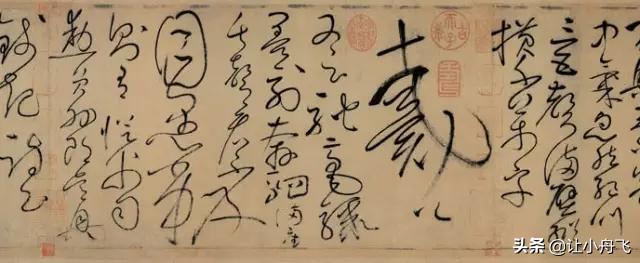 中氣忽然絕叫
三五聲滿壁縱
橫千萬字
戴公
又云馳毫驟
墨列奔駟滿座
失聲看不及
目愚劣
則有從父司
勳員外郎吳興
錢起詩云
头条 @让小舟飞